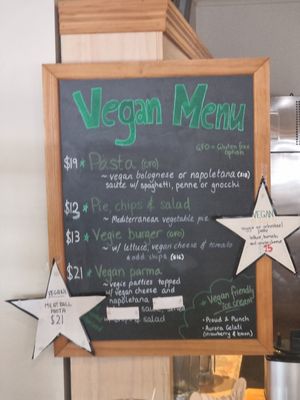 Vegan Menu
GFO = Gluten free
option
$19 * Pasta (GFO)
~ vegan bolognese or napoletana (GFO)
sauce w/ spaghetti, penne or gnocchi
$13 * Pie, chips & salad
~ Mediterranean vegetable pie
$13 * Vegie burger (GFO)
~ w/ lettuce, vegan cheese & tomato
* add chips
$21 * Vegan parma
~ vegie parties topped
w/ vegan cheese and
napoletana
& salad
Vegan friendly
ice cream!
• Proud & Punch
• Aurora Gelati
(strawberry & lemon)
VEGAN
MEATBALL
PASTA
$21
VEGAN